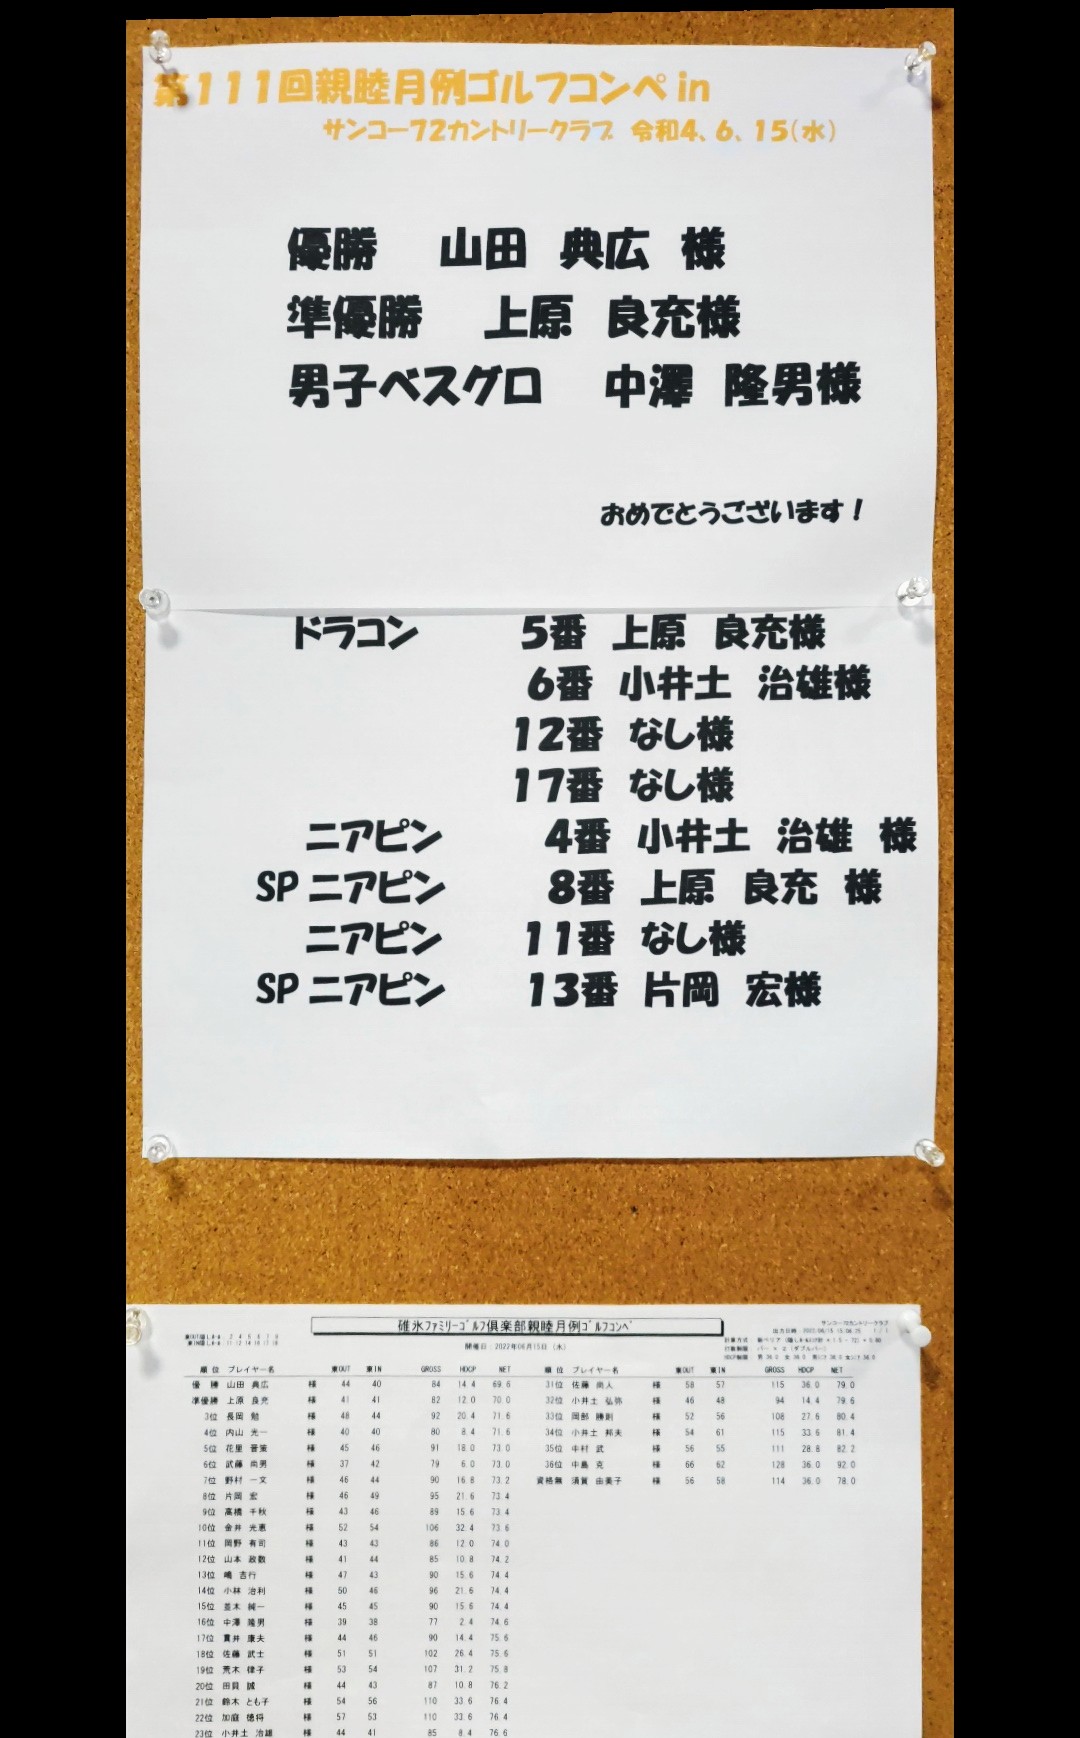 第111回親睦月例ゴルフコンペ in
サンコー72カントリークラブ 令和4、6、15(水)
優勝 山田 典広 様
準優勝 上原 良充様
男子ベスグロ 中澤 隆男様
おめでとうございます!
ドラコン 5番 上原 良充様
6番 小井土 治雄様
12番 なし様
17番 なし様
ニアピン 4番 小井土 治雄 様
SP ニアピン 8番 上原 良充 様
ニアピン 11番 なし様
SP ニアピン 13番 片岡 宏様
サンコー72カントリークラブ
碓氷ファミリーゴルフ倶楽部親睦月例ゴルフコンペ
開催日:2022年06月15日(水)
順 位 プレイヤー名 東OUT 東IN GROSS HDCP NET
優 勝 山田 典広 様 44 40 84 14.4 69.6
準優勝 上原 良充 様 41 41 82 12.0 70.0
3位 長岡 勉 様 48 44 92 20.4 71.6
4位 内山 光一 様 40 40 80 8.4 71.6
5位 花里 晋策 様 45 46 91 18.0 73.0
6位 武藤 尚男 様 37 42 79 6.0 73.0
7位 野村 一文 様 46 44 90 16.8 73.2
8位 片岡 宏 様 46 49 95 21.6 73.4
9位 高橋 千秋 様 43 46 89 15.6 73.4
10位 金井 光恵 様 52 54 106 32.4 73.6
11位 岡野 有司 様 43 43 86 12.0 74.0
12位 山本 政数 様 41 44 85 10.8 74.2
13位 嶋 吉行 様 47 43 90 15.6 74.4
14位 小林 治利 様 50 46 96 21.6 74.4
15位 並木 純一 様 45 45 90 15.6 74.4
16位 中澤 隆男 様 39 38 77 2.4 74.6
17位 貫井 康夫 様 44 46 90 14.4 75.6
18位 佐藤 武士 様 51 51 102 26.4 75.6
19位 荒木 律子 様 53 54 107 31.2 75.8
20位 田貝 誠 様 44 43 87 10.8 76.2
21位 鈴木 とも子 様 54 56 110 33.6 76.4
22位 加庭 徳将 様 57 53 110 33.6 76.4
23位 小井土 治雄 様 44 41 85 8.4 76.6
順 位 プレイヤー名 東OUT 東IN GROSS HDCP NET
31位 佐藤 尚人 様 58 57 115 36.0 79.0
32位 小井土 弘弥 様 46 48 94 14.4 79.6
33位 岡部 勝則 様 52 56 108 27.6 80.4
34位 小井土 邦夫 様 54 61 115 33.6 81.4
35位 中村 武 様 56 55 111 28.8 82.2
36位 中島 克 様 66 62 128 36.0 92.0
資格無 須賀 由美子 様 56 58 114 36.0 78.0